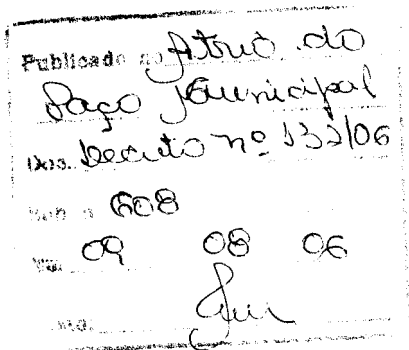 Publicado no Átrio do
Paço Municipal
Decreto nº 132/06
608
09 08 06